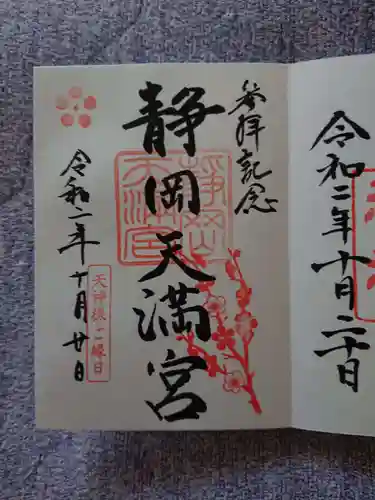 令和二年十月二十日
参拝記念
静岡天満宮
静岡
天満宮
天神様ご縁日
令和二年十月廿日